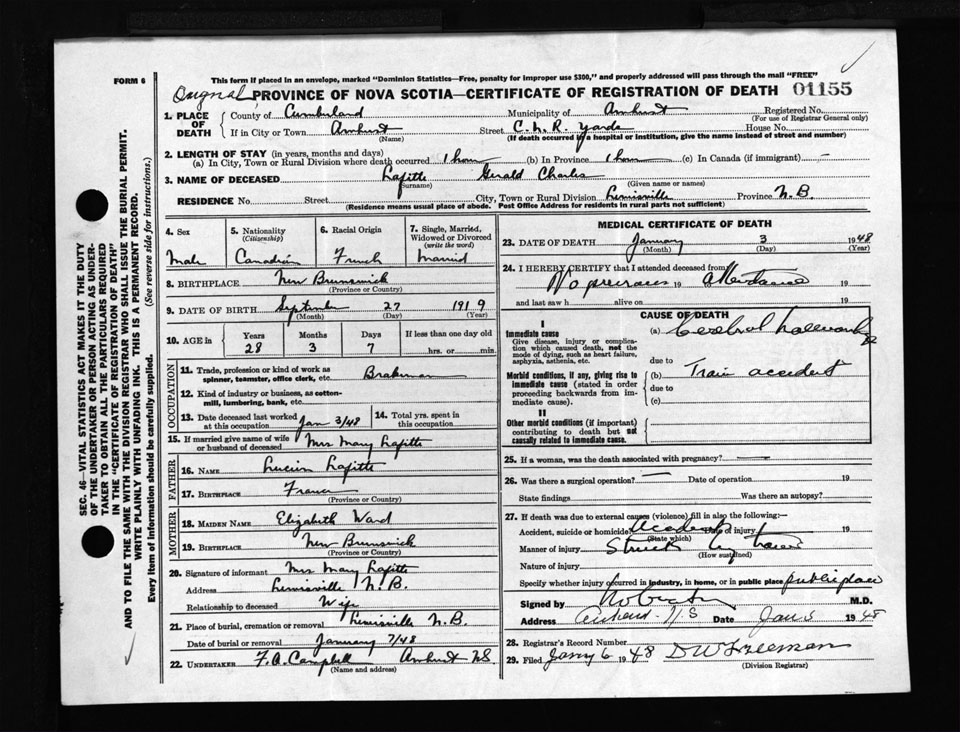 FORM 6
This form if placed in an envelope, marked "Dominion Statistics—Free, penalty for improper use $300," and properly addressed will pass through the mail "FREE"
Original PROVINCE OF NOVA SCOTIA—CERTIFICATE OF REGISTRATION OF DEATH 01155
1. PLACE OF DEATH
County of Cumberland Municipality of Amherst Registered No.
(For use of Registrar General only)
If in City or Town Amherst Street C.N.R. Yards House No.
(Name) (If death occurred in a hospital or institution, give the name instead of street and number)
2. LENGTH OF STAY (in years, months and days)
(a) In City, Town or Rural Division where death occurred 1 hour (b) In Province 1 hour (c) In Canada (if immigrant) —
3. NAME OF DECEASED Lafitte Gerald Charles
(Surname) (Given name or names)
RESIDENCE No. Street City, Town or Rural Division Lewisville Province N.B.
(Residence means usual place of abode. Post Office Address for residents in rural parts not sufficient)
4. Sex
Male
5. Nationality
(Citizenship)
Canadian
6. Racial Origin
French
7. Single, Married, Widowed or Divorced
(write the word)
Married
8. BIRTHPLACE New Brunswick
(Province or Country)
9. DATE OF BIRTH September 27 1919
(Month) (Day) (Year)
10. AGE in Years Months Days If less than one day old
28 3 7 hrs. or min.
OCCUPATION
11. Trade, profession or kind of work as
spinner, teamster, office clerk, etc. Brakeman
12. Kind of industry or business, as cotton-
mill, lumbering, bank, etc.
13. Date deceased last worked
at this occupation Jan 3/48
14. Total yrs. spent in
this occupation
15. If married give name of wife
or husband of deceased Mrs Mary Lafitte
FATHER
16. NAME Lucien Lafitte
17. BIRTHPLACE France
(Province or Country)
MOTHER
18. MAIDEN NAME Elizabeth Ward
19. BIRTHPLACE New Brunswick
(Province or Country)
20. Signature of informant Mrs Mary Lafitte
Address Lewisville N.B.
Relationship to deceased Wife
21. Place of burial, cremation or removal Lewisville N.B.
Date of burial or removal January 7/48
22. UNDERTAKER F.A. Campbell Amherst NS.
(Name and address)
MEDICAL CERTIFICATE OF DEATH
23. DATE OF DEATH January 3 1948
(Month) (Day) (Year)
24. I HEREBY CERTIFY that I attended deceased from
No previous 19 attendance 19
and last saw h alive on 19
CAUSE OF DEATH
I
Immediate cause
Give disease, injury or complica-
tion which caused death, not the
mode of dying, such as heart failure,
asphyxia, asthenia, etc.
(a) Cerebral
due to
Morbid conditions, if any, giving rise to
immediate cause (stated in order
proceeding backwards from im-
mediate cause).
(b) Train accident
due to
(c)
II
Other morbid conditions (if important)
contributing to death but not
causally related to immediate cause.
25. If a woman, was the death associated with pregnancy? —
26. Was there a surgical operation? — Date of operation 19
State findings Was there an autopsy?
27. If death was due to external causes (violence) fill in also the following:—
Accident, suicide or homicide Accident Date of injury 19
(State which)
Manner of injury Struck by train
(How sustained)
Nature of injury
Specify whether injury occurred in industry, in home, or in public place public place
Signed by M.D.
Address Amherst N.S Date Jan 5 1948
28. Registrar's Record Number
29. Filed Jany 6 1948 D W Freeman
(Division Registrar)
SEC. 46—VITAL STATISTICS ACT MAKES IT THE DUTY
OF THE UNDERTAKER OR PERSON ACTING AS UNDER-
TAKER TO OBTAIN ALL THE PARTICULARS REQUIRED
IN THE "CERTIFICATE OF REGISTRATION OF DEATH"
AND TO FILE THE SAME WITH THE DIVISION REGISTRAR WHO SHALL ISSUE THE BURIAL PERMIT.
WRITE PLAINLY WITH UNFADING INK. THIS IS A PERMANENT RECORD.
Every item of information should be carefully supplied. (See reverse side for instructions.)